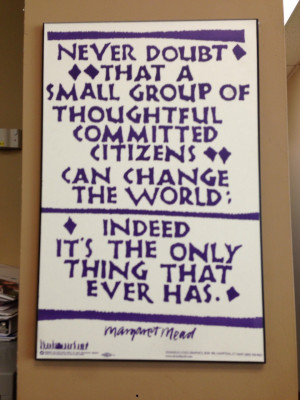 NEVER DOUBT
THAT A
SMALL GROUP OF
THOUGHTFUL
COMMITTED
CITIZENS
CAN CHANGE
THE WORLD:
INDEED
IT'S THE ONLY
THING THAT
EVER HAS.
margaret mead